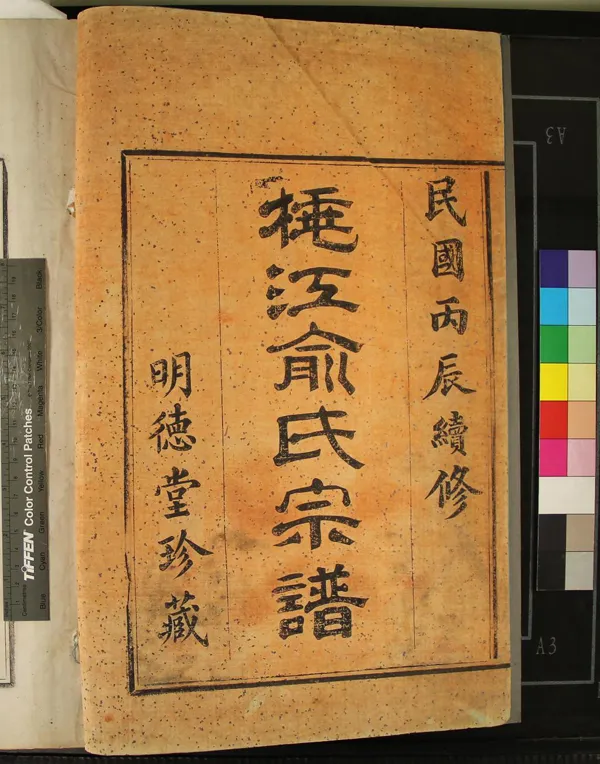 民國丙辰續修
江俞氏宗譜
明德堂珍藏
TIFFEN Color Control Patches
Blue
Cyan
Green
Yellow
Red
Magenta
White
3/Color
Black
A3
A3